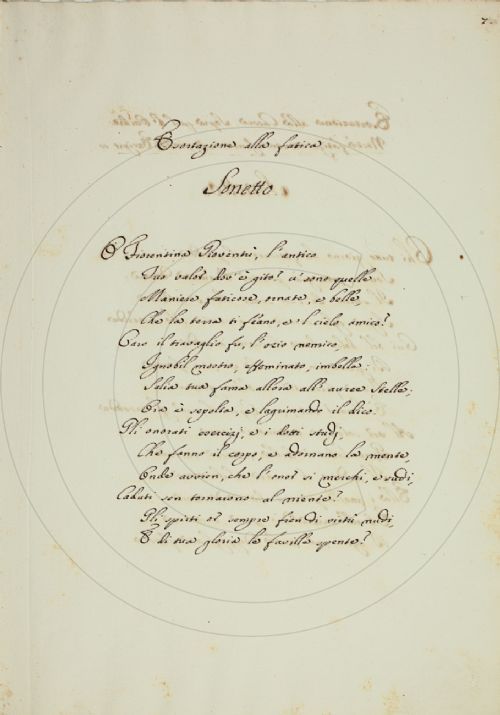 7
Esortazione alla fatica
Sonetto
O Fiorentina Gioventù, l'antico
Tuo valor dov'è gito? u' sono quelle
Maniere faticose, ornate, e belle
Che la terra ti feano, e 'l cielo amico?
Caro il travaglio fu, l'ozio nemico,
Ignobil mostro, effeminato, imbelle:
Salia tua fama allora all'auree Stelle;
Ora è sepolta, e lagrimando il dico.
Gli onorati esercizj, e i dotti studj,
Che fanno il corpo, e adornano la mente,
Onde avvien, che l'onor si merchi, e sudi,
Caduti son tornarono al niente?
Gli spirti or sempre fien di virtù nudi,
E di tua gloria le faville spente?